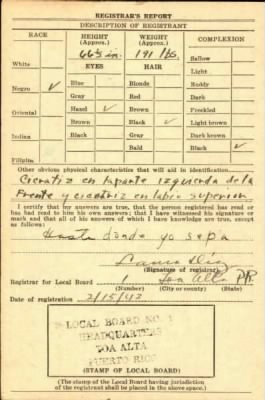 REGISTRAR'S REPORT
DESCRIPTION OF REGISTRANT
RACE HEIGHT (Approx.) WEIGHT (Approx.) COMPLEXION
66½ in. 191 lbs. Sallow
White EYES HAIR Light
Blue Blonde Ruddy
Negro ✓ Gray Red Dark
Oriental Hazel ✓ Brown Freckled
Brown Black ✓ Light brown
Indian Black Gray Dark brown
Bald Black ✓
Filipino
Other obvious physical characteristics that will aid in identification
Cicatriz en la parte izquierda de la
frente y cicatriz en labio superior
I certify that my answers are true, that the person registered has read or
has had read to him his own answers; that I have witnessed his signature or
mark and that all of his answers of which I have knowledge are true, except
as follows:
Hasta donde yo sepa
(Signature of registrar)
Registrar for Local Board 1 Toa Alta PR
(Number) (City or county) (State)
Date of registration 2/15/42
LOCAL BOARD NO. 1
HEADQUARTERS
TOA ALTA
PUERTO RICO
(STAMP OF LOCAL BOARD)
(The stamp of the Local Board having jurisdiction
of the registrant shall be placed in the above space.)